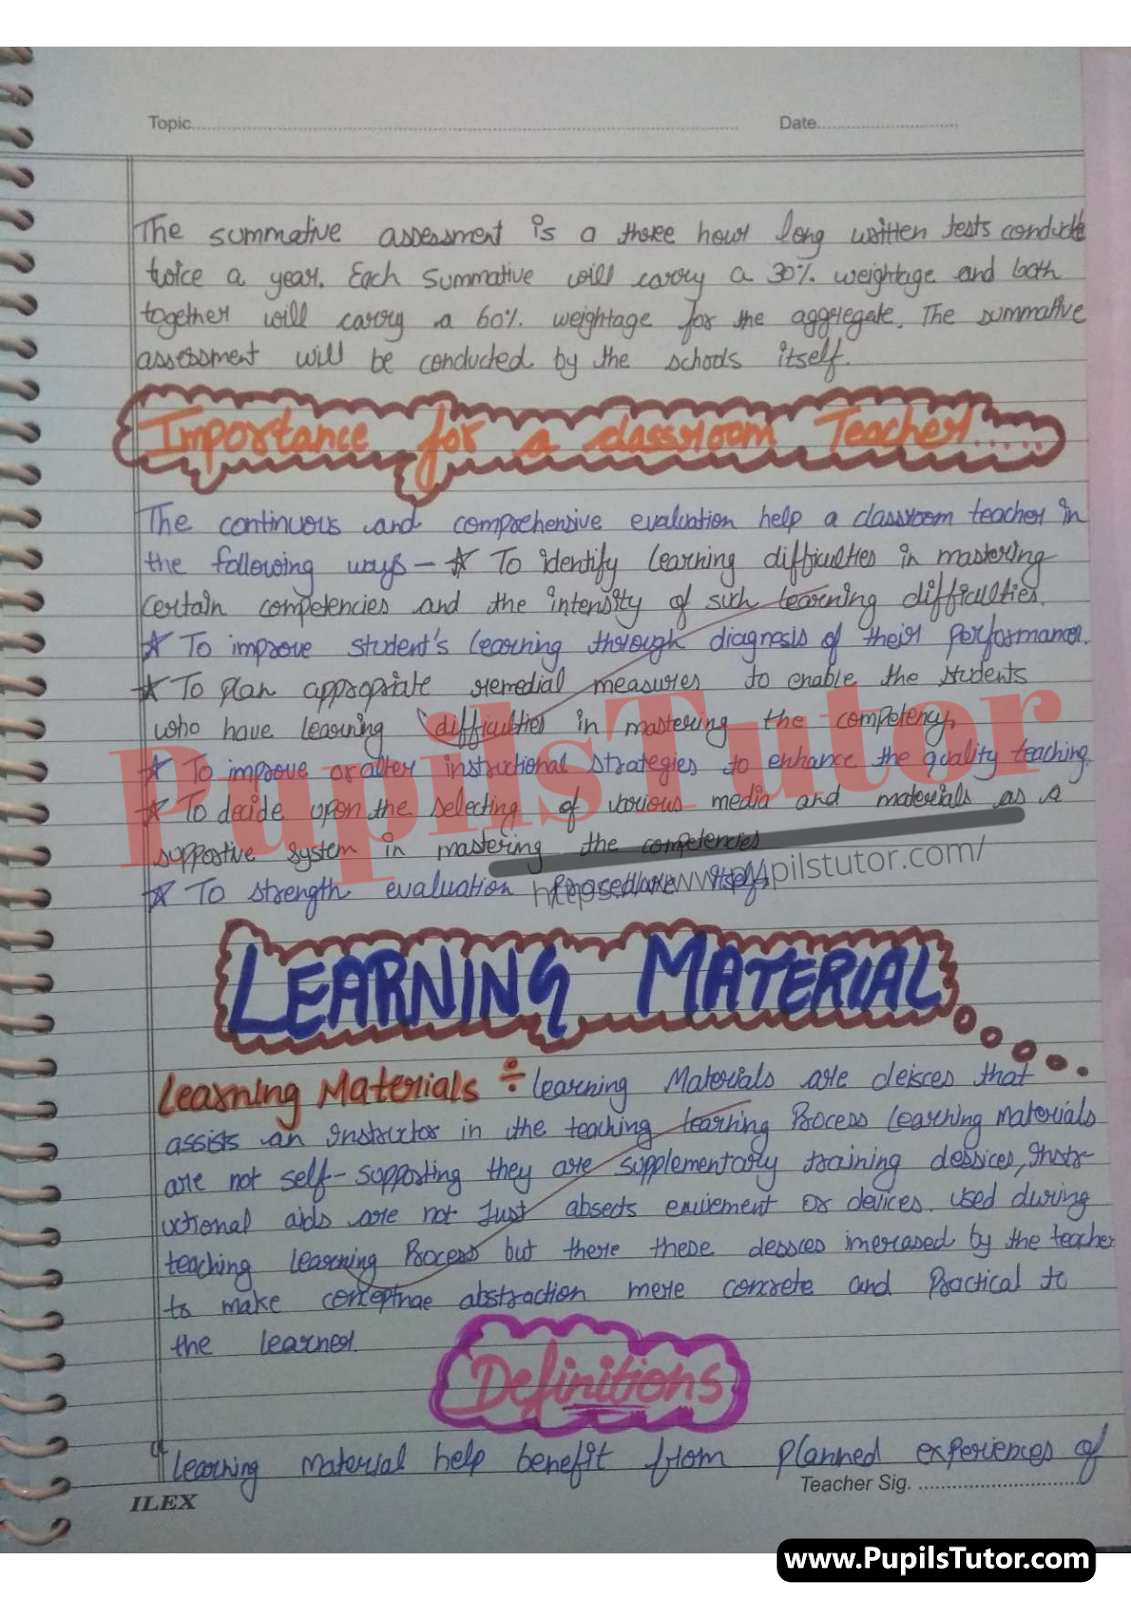 Topic.......... Date..........
The summative assessment is a three hour long written tests conducte
twice a year. Each summative will carry a 30% weightage and both
together will carry a 60% weightage for the aggregate. The summative
assessment will be conducted by the schools itself.
Importance for a classroom Teacher.....
The continuous and comprehensive evaluation help a classroom teacher in
the following ways - ☆ To identify learning difficulties in mastering
certain competencies and the intensity of such learning difficulties.
☆ To improve student's learning through diagnosis of their performance.
☆ To plan appropriate remedial measures to enable the students
who have learning difficulties in mastering the competency.
☆ To improve or alter instructional strategies to enhance the quality teaching
☆ To decide upon the selecting of various media and materials as a
supportive system in mastering the competencies
☆ To strength evaluation itself.
PupilsTutor
https://www.pupilstutor.com/
LEARNING MATERIAL
Learning Materials ÷ learning Materials are deisces that
assists an Instructor in the teaching learning Process learning materials
are not self-supporting they are supplementary training dessices, Instr-
uctional aids are not Just absects or devices. used during
teaching learning Process but there these dessices imcrased by the teacher
to make abstraction mere concrete and Practical to
the learner.
Definitions
"Learning material help benefit from planned experiences of
Teacher Sig. ..........
ILEX
www.PupilsTutor.com